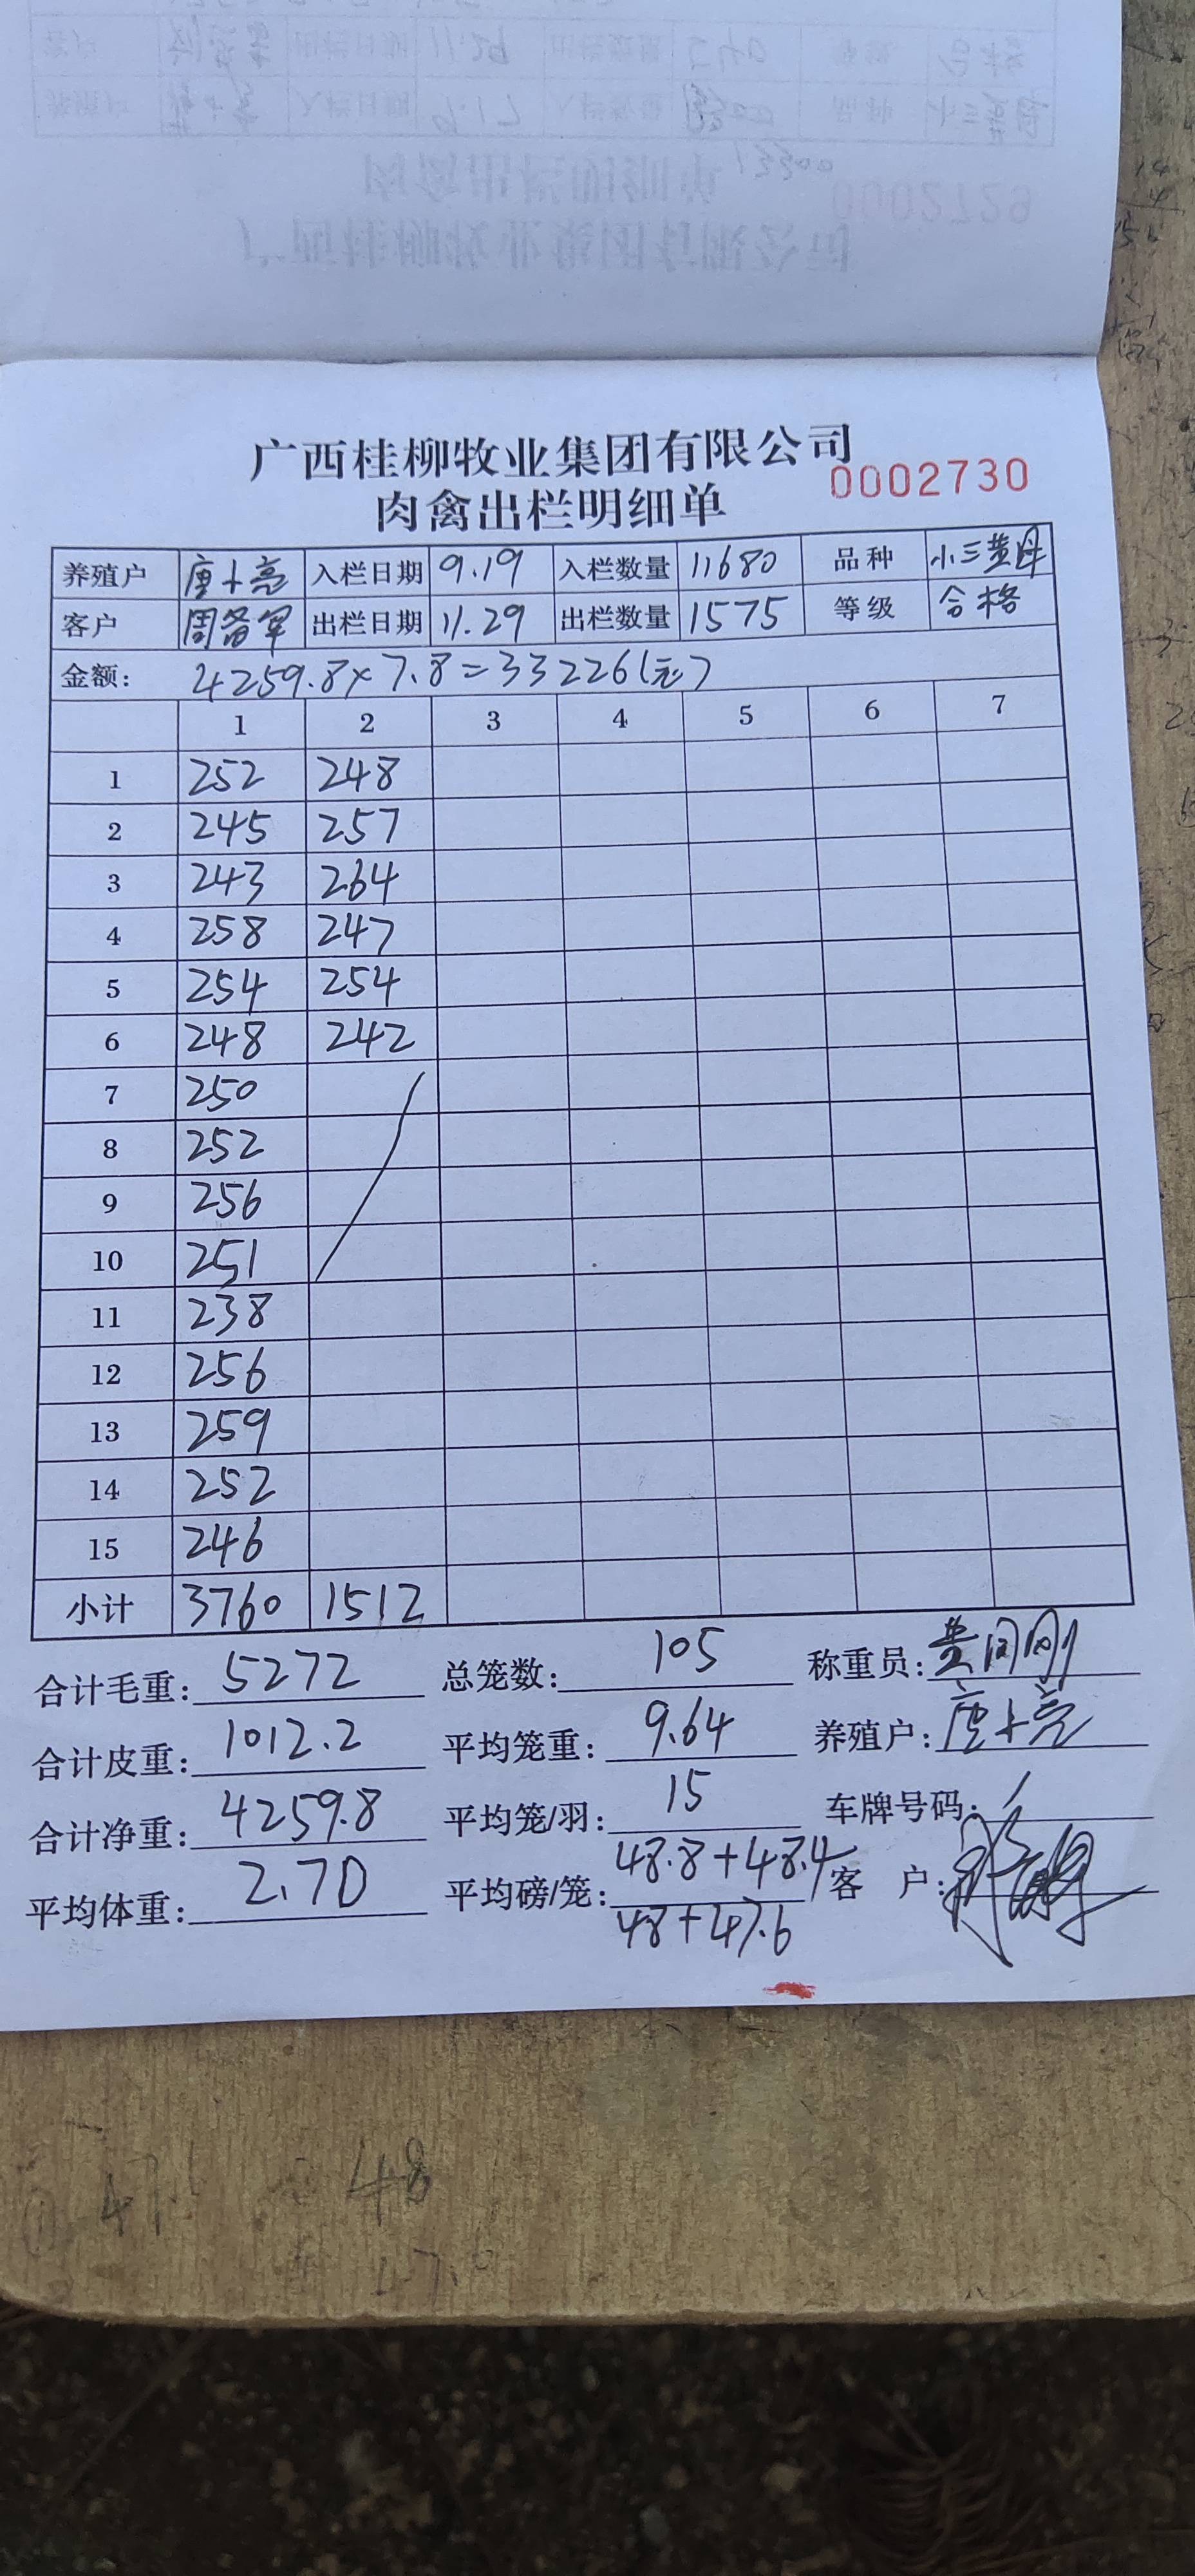 广西桂柳牧业集团有限公司
肉禽出栏明细单 0002730
养殖户 唐小亮 入栏日期 9.19 入栏数量 11680 品种 小三黄母
客户 周备军 出栏日期 11.29 出栏数量 1575 等级 合格
金额: 4259.8×7.8=33226(元)
1 2 3 4 5 6 7
1 252 248
2 245 257
3 243 264
4 258 247
5 254 254
6 248 242
7 250
8 252
9 256
10 251
11 238
12 256
13 259
14 252
15 246
小计 3760 1512
合计毛重: 5272 总笼数: 105 称重员:
合计皮重: 1012.2 平均笼重: 9.64 养殖户: 唐小亮
合计净重: 4259.8 平均笼/羽: 15 车牌号码: /
平均体重: 2.70 平均磅/笼: 48.8+48.4 客 户:
48+47.6
0002729
48